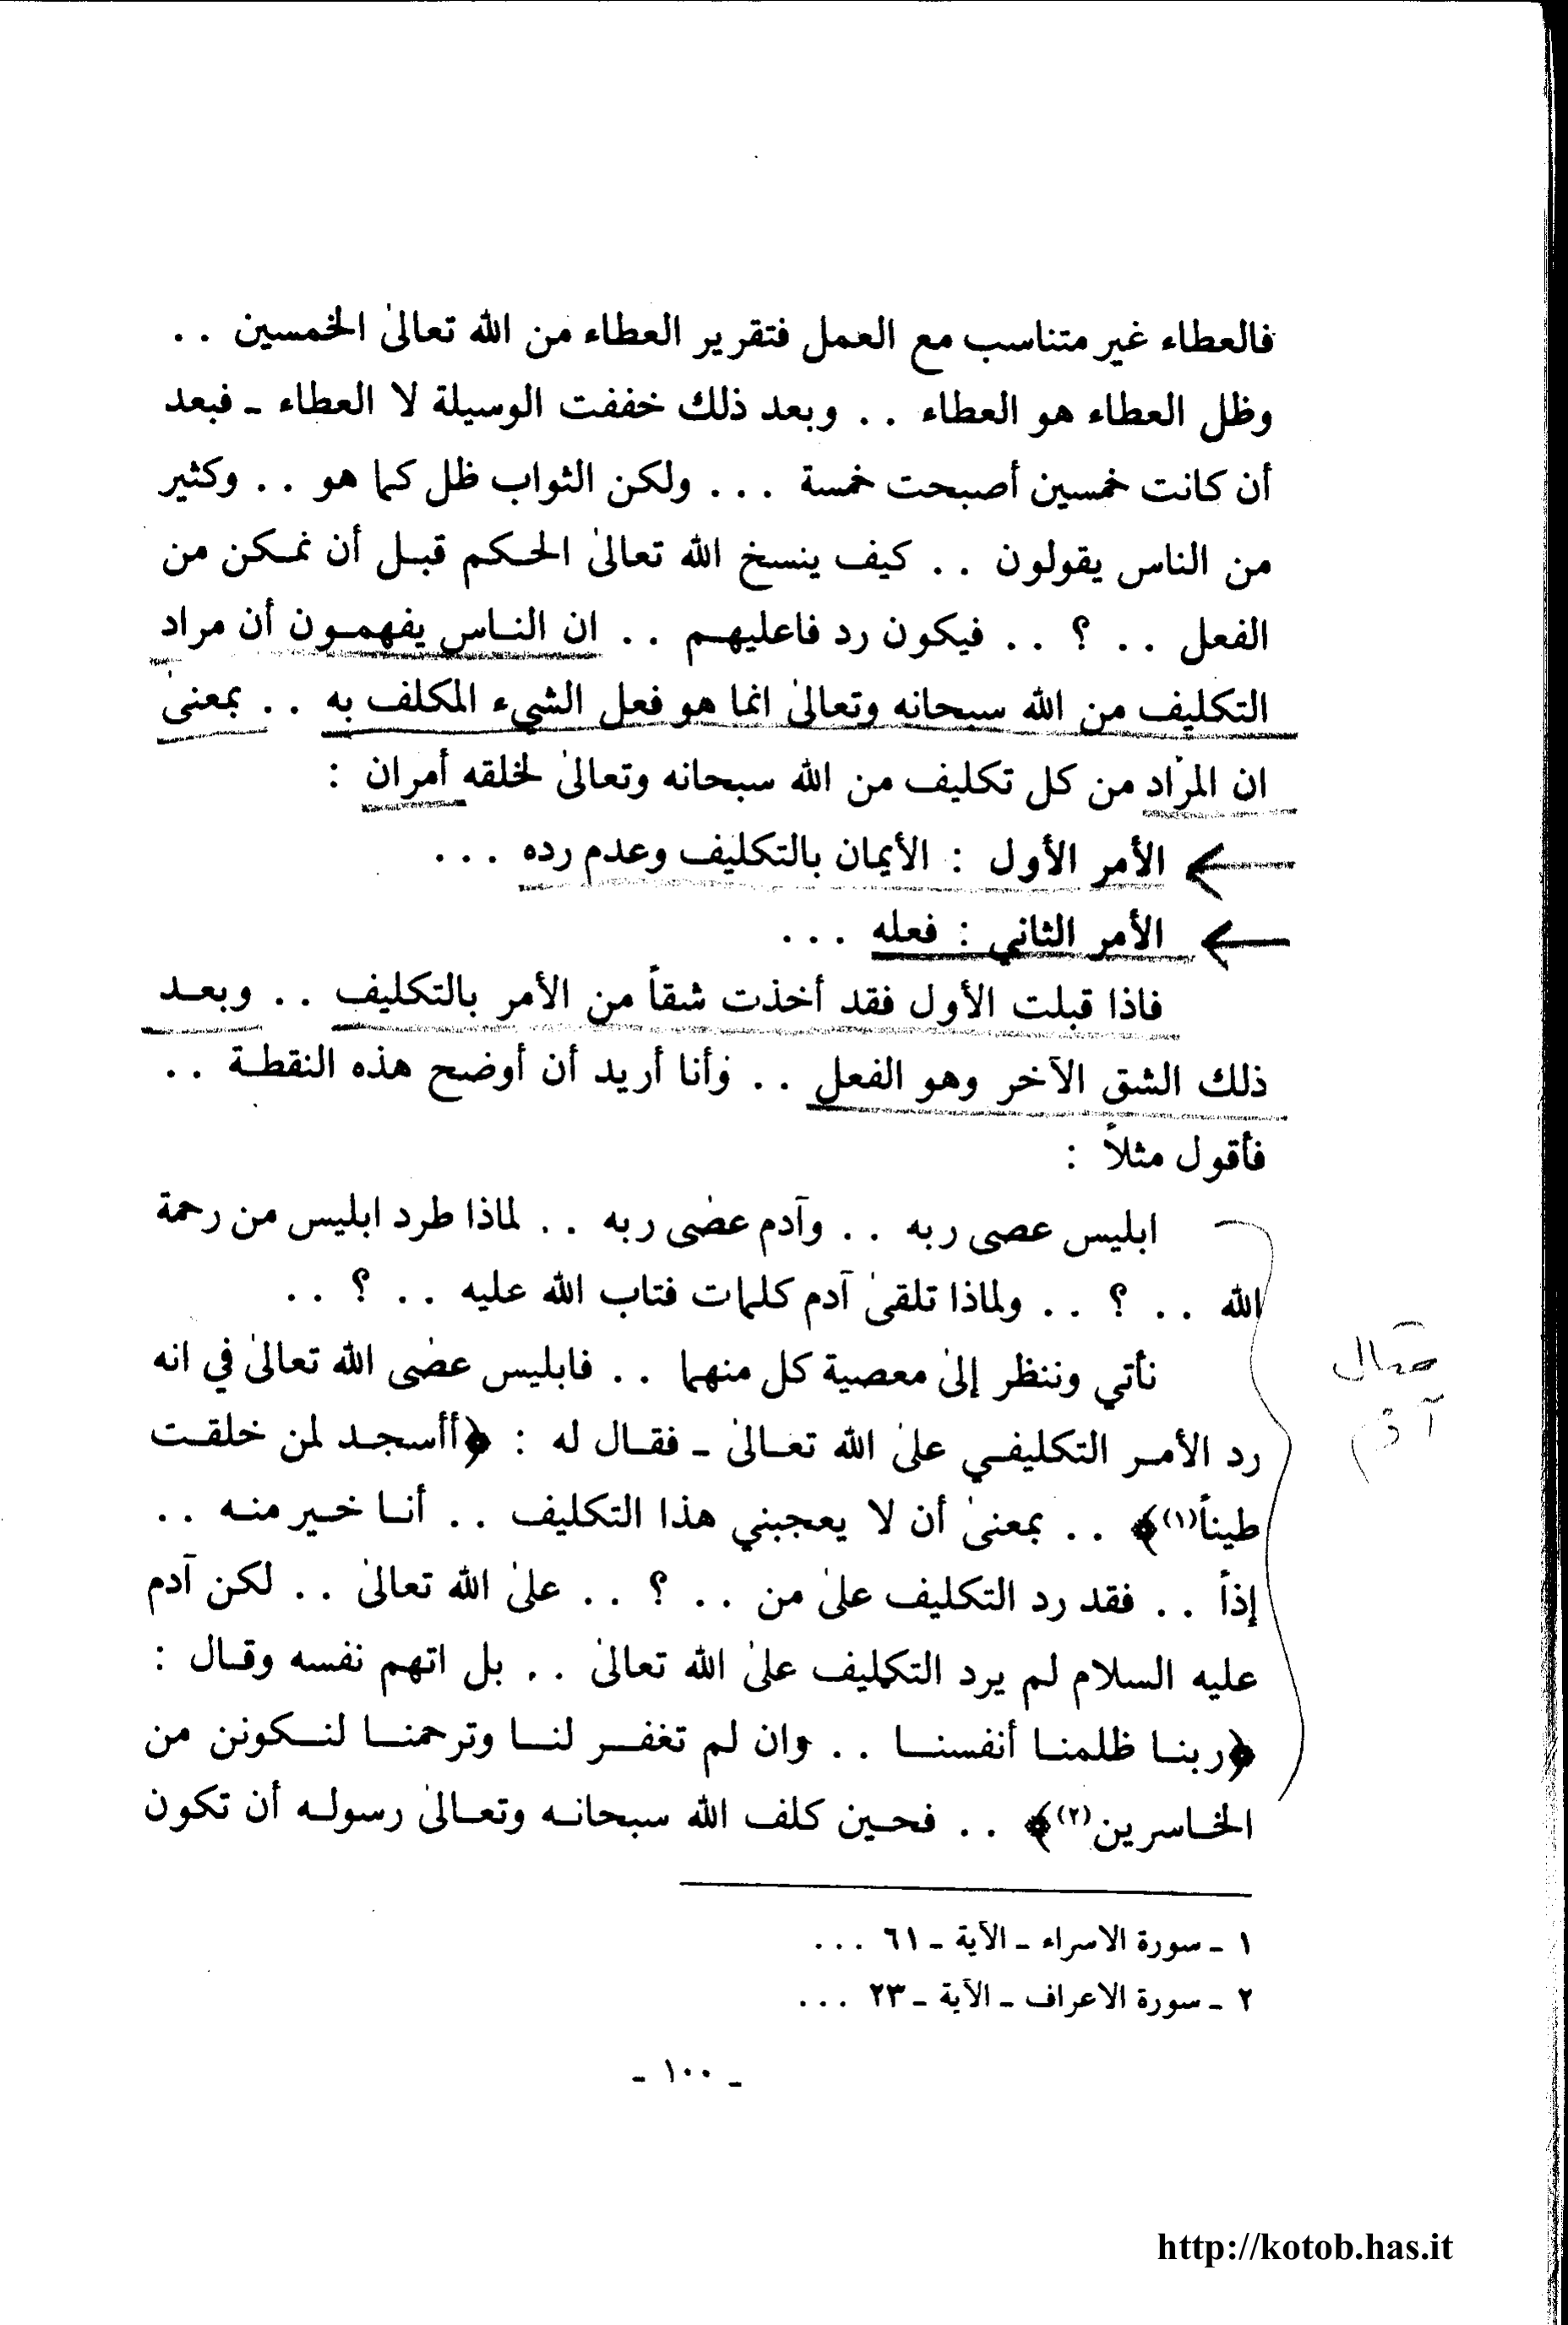 فالعطاء غير متناسب مع العمل فتقرير العطاء من الله تعالىٰ الخمسين . .
وظل العطاء هو العطاء . . وبعد ذلك خففت الوسيلة لا العطاء ـ فبعد
أن كانت خمسين أصبحت خمسة . . . ولكن الثواب ظل كما هو . . وكثير
من الناس يقولون . . كيف ينسخ الله تعالىٰ الحكم قبل أن نمكن من
الفعل . . ؟ . . فيكون رد فاعليهم . . ان الناس يفهمون أن مراد
التكليف من الله سبحانه وتعالىٰ انما هو فعل الشيء المكلف به . . بمعنىٰ
ان المراد من كل تكليف من الله سبحانه وتعالىٰ لخلقه أمران :
الأمر الأول : الأيمان بالتكليف وعدم رده . . .
الأمر الثاني : فعله . . .
فاذا قبلت الأول فقد أخذت شقاً من الأمر بالتكليف . . وبعد
ذلك الشق الآخر وهو الفعل . . وأنا أريد أن أوضح هذه النقطة . .
فأقول مثلاً :
ابليس عصى ربه . . وآدم عضى ربه . . لماذا طرد ابليس من رحمة
الله . . ؟ . . ولماذا تلقىٰ آدم كلمات فتاب الله عليه . . ؟ . .
نأتي وننظر إلىٰ معصية كل منهما . . فابليس عضى الله تعالىٰ في انه
رد الأمر التكليفي علىٰ الله تعالىٰ ـ فقال له : ﴿أأسجد لمن خلقت
طيناً(١)﴾ . . بمعنىٰ أن لا يعجبني هذا التكليف . . أنا خير منه . .
إذاً . . فقد رد التكليف علىٰ من . . ؟ . . علىٰ الله تعالىٰ . . لكن آدم
عليه السلام لم يرد التكليف علىٰ الله تعالىٰ . . بل اتهم نفسه وقال :
﴿ربنا ظلمنا أنفسنا . . وان لم تغفر لنا وترحمنا لنكونن من
الخاسرين(٢)﴾ . . فحين كلف الله سبحانه وتعالىٰ رسوله أن تكون
١ ـ سورة الاسراء ـ الآية ـ ٦١ . . .
٢ ـ سورة الاعراف ـ الآية ـ ٢٣ . . .
ـ ١٠٠ ـ
http://kotob.has.it